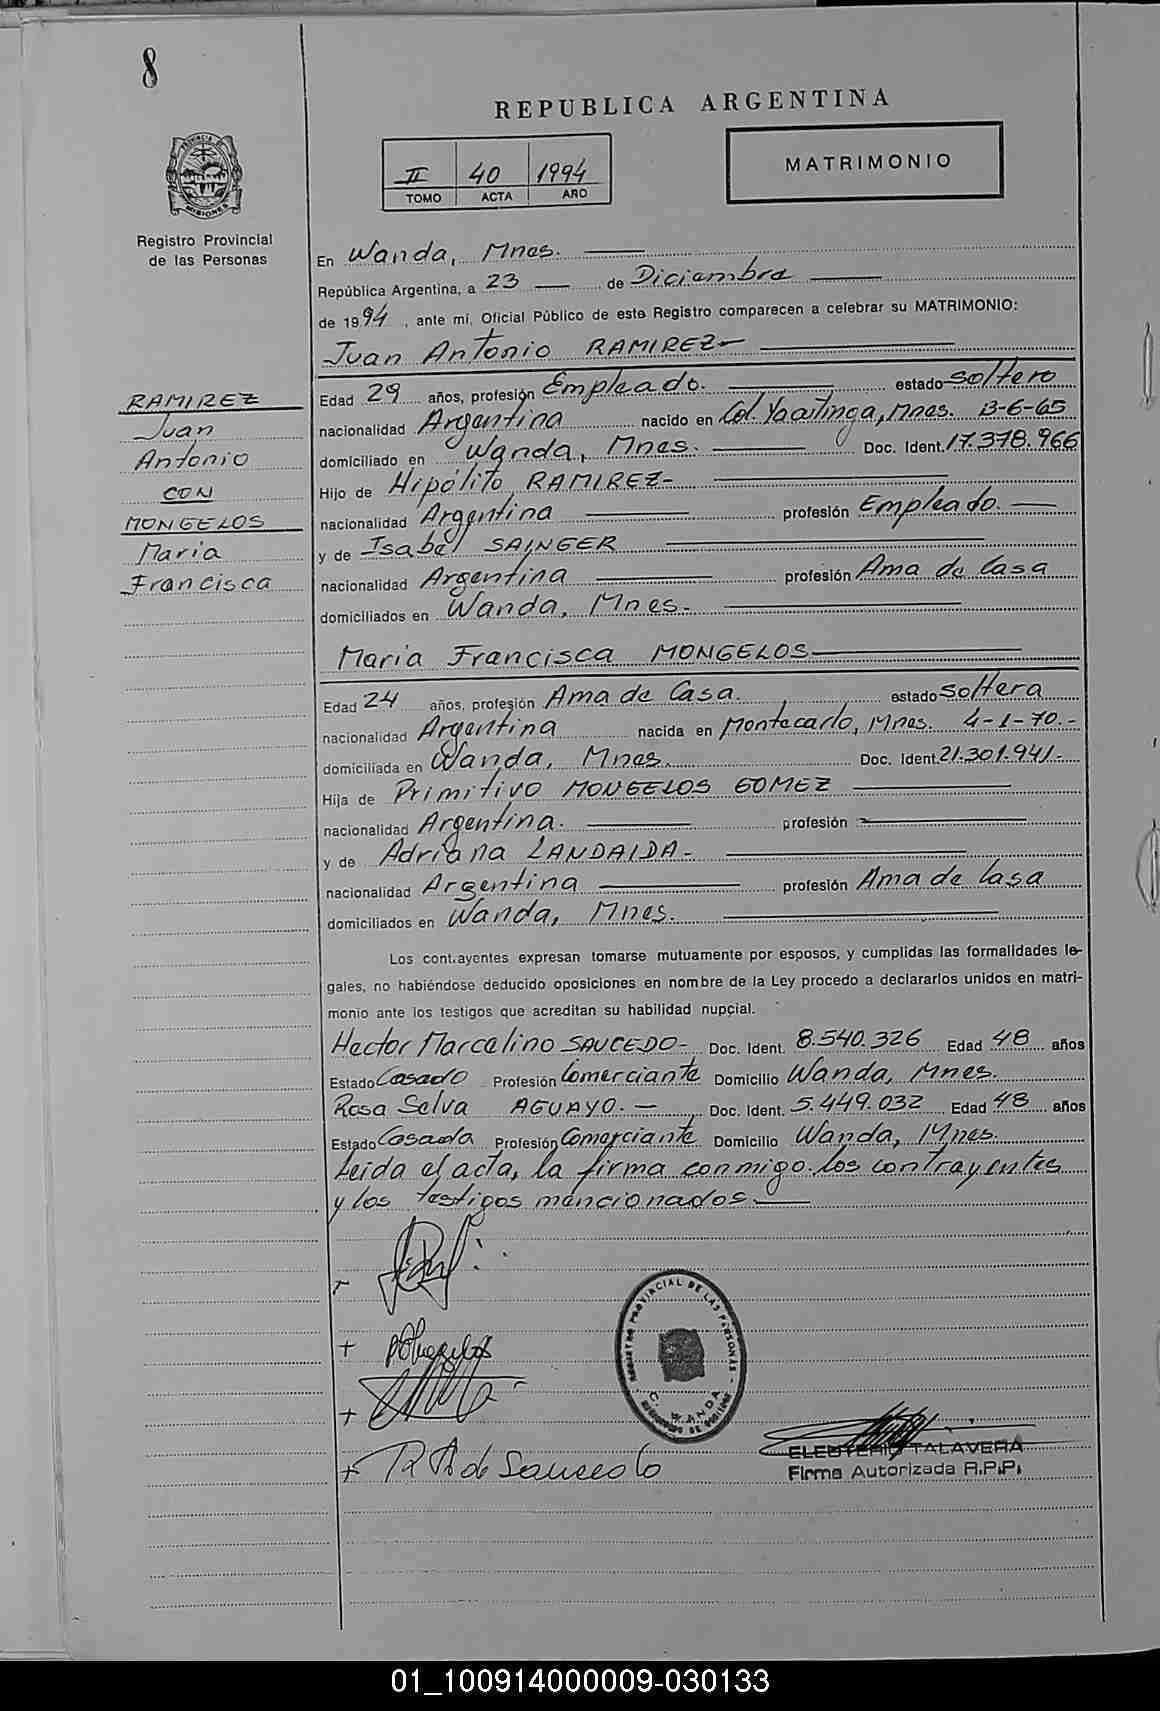 8
REPUBLICA ARGENTINA
II 40 1994
TOMO ACTA AÑO
MATRIMONIO
PROVINCIA DE MISIONES
Registro Provincial
de las Personas
En Wanda, Mnes.
República Argentina, a 23 de Diciembre
de 1994, ante mí, Oficial Público de este Registro comparecen a celebrar su MATRIMONIO:
Juan Antonio RAMIREZ-
RAMIREZ
Juan
Antonio
CON
MONGELOS
Maria
Francisca
Edad 29 años, profesión Empleado. estado soltero
nacionalidad Argentina nacido en Col. Mnes. 13-6-65
domiciliado en Wanda, Mnes. Doc. Ident. 17.378.966
Hijo de Hipólito RAMIREZ-
nacionalidad Argentina profesión Empleado.
y de Isabel SAINGER
nacionalidad Argentina profesión Ama de Casa
domiciliados en Wanda, Mnes.
Maria Francisca MONGELOS
Edad 24 años, profesión Ama de Casa. estado soltera
nacionalidad Argentina nacida en Montecarlo, Mnes. 4-1-70.-
domiciliada en Wanda, Mnes. Doc. Ident. 21.301.941.-
Hija de Primitivo MONGELOS GOMEZ
nacionalidad Argentina. profesión
y de Adriana LANDAIDA-
nacionalidad Argentina profesión Ama de Casa
domiciliados en Wanda, Mnes.
Los contrayentes expresan tomarse mutuamente por esposos, y cumplidas las formalidades le-
gales, no habiéndose deducido oposiciones en nombre de la Ley procedo a declararlos unidos en matri-
monio ante los testigos que acreditan su habilidad nupcial.
Hector Marcelino SAUCEDO- Doc. Ident. 8.540.326 Edad 48 años
Estado Casado Profesión Comerciante Domicilio Wanda, Mnes.
Rosa Selva AGUAYO.- Doc. Ident. 5.449.032 Edad 48 años
Estado Casada Profesión Comerciante Domicilio Wanda, Mnes.
Leida el acta, la firma conmigo los contrayentes
y los testigos mencionados
REGISTRO PROVINCIAL DE LAS PERSONAS
WANDA
de Saucedo
ELEUTERIO TALAVERA
Firma Autorizada R.P.P.
01_100914000009-030133